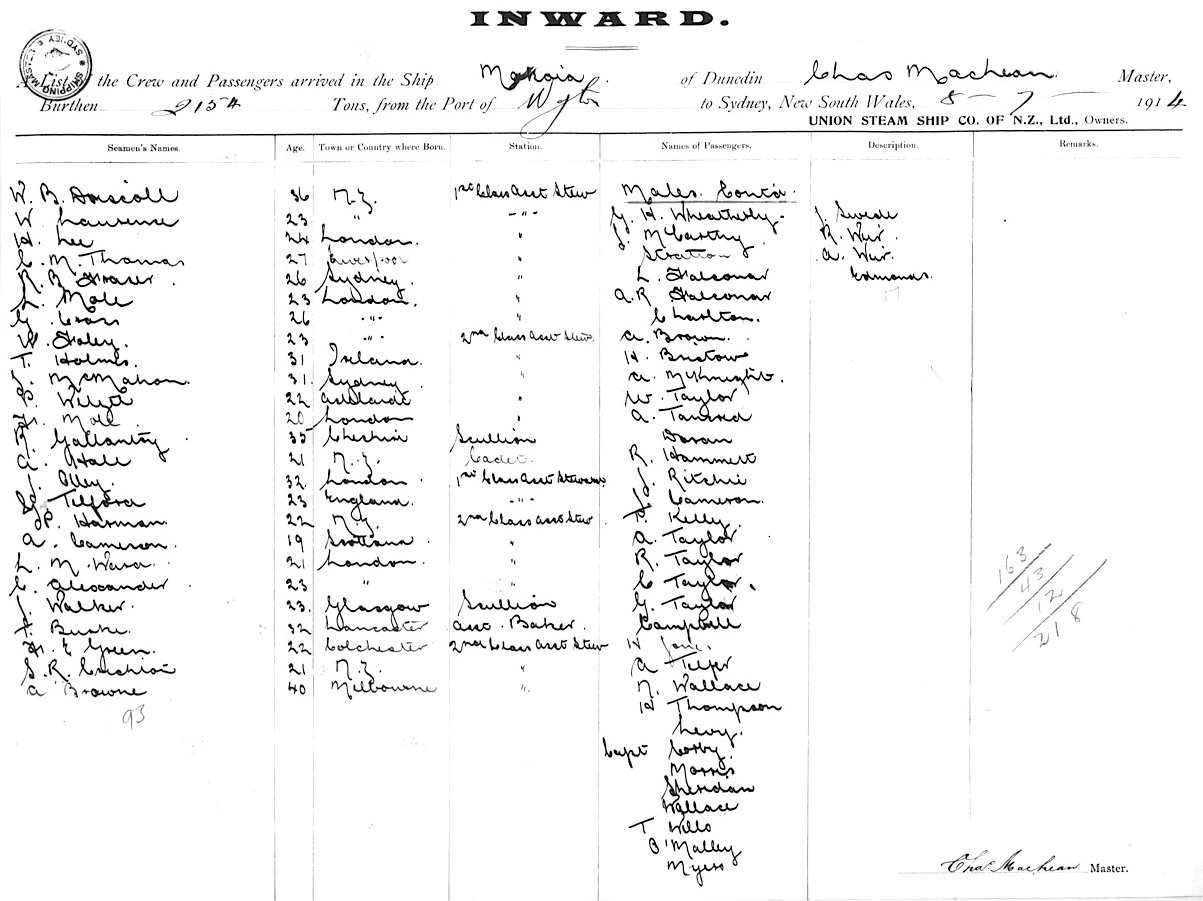 INWARD.
A List of the Crew and Passengers arrived in the Ship of Dunedin Chas Master,
Burthen 2154 Tons, from the Port of Wgtn to Sydney, New South Wales, 8 - 7 - 1914
UNION STEAM SHIP CO. OF N.Z., Ltd., Owners.
Seamen's Names. Age. Town or Country where Born. Station. Names of Passengers. Description. Remarks.
W. B. Driscoll 36 N.Z. 1st Class Asst Stew Males Contd.
W. Laurence 23 " - " - G. H. Wheaterly. J. Swede
H. Lee 24 London. " J. McCarthy R. Weir.
C. M. Thomas 27 Liverpool " Stratton A. Weir.
R. B. Fraser 26 Sydney. " L. Falconar Edmonds.
L. Mole 23 London. " A. R. Falconar 17
G. 26 - " - " Charlton.
W. Foley. 23 - " - 2nd Class Asst Stew. A. Brown.
T. Holmes. 31 Ireland. " H. Bristow
J. McMahon. 31. Sydney. " A. McKnight.
22 Adelaide " W. Taylor
Mole 20 London " A. Tancred
Gallantry 35 Cheshire Scullion Doran
A. Hale 21 N.Z. Cadet. R. Hammett
J. Olley. 32 London. 1st Class Asst Steward J. Ritchie
Telford 23 England. - " - J. Cameron.
P. Harman. 22 N.Z. 2nd Class Asst Stew. F. Kelly.
A. Cameron. 19 Scotland. " A. Taylor
L. M. Ward. 21 London. " R. Taylor
C. Alexander 23 " " C. Taylor.
J. Walker. 23. Glasgow Scullion G. Taylor
F. Burke. 32 Lancaster Asst. Baker. Campbell
H. E. Green. 22 Colchester 2nd Class Asst Stew H. Jones.
S. R. Crichton 21 N.Z. " A. Telfer
A. Browne 40 Melbourne " N. Wallace
93 H. Thompson
Levy.
Capt Corby.
Morris
Sheridan
Wallace
T Wills
O'Malley
Myers
163
43
12
218
Chas. Master.